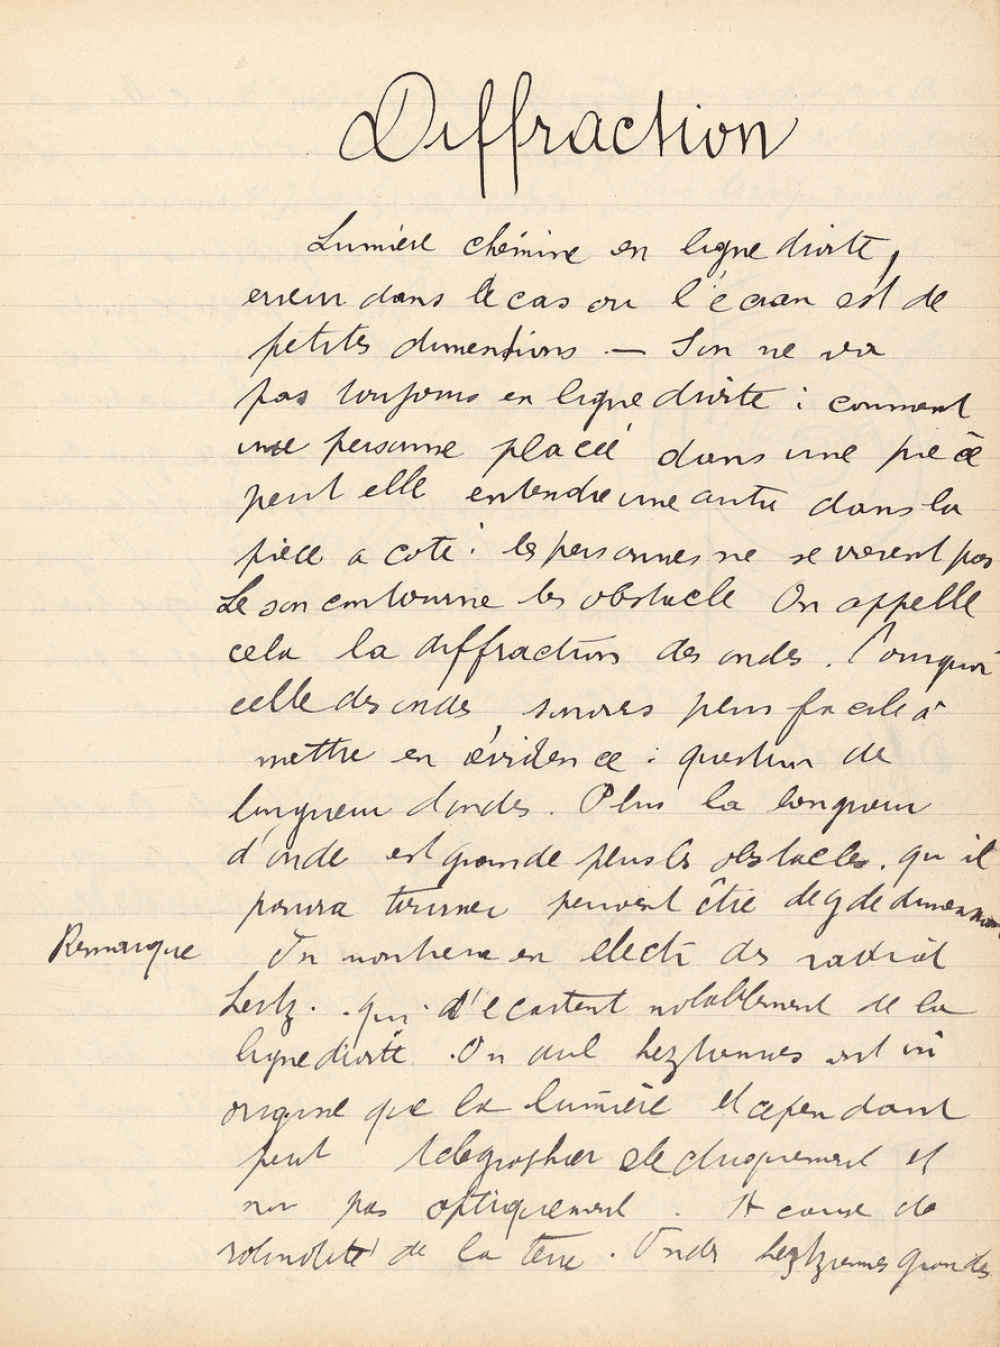 Diffraction
Lumière chemine en ligne droite,
erreur dans le cas ou l'écran est de
petites dimensions — Son ne va
pas toujours en ligne droite : comment
une personne placée dans une pièce
peut elle entendre une autre dans la
pièce a coté : les personnes ne se voient pas
Le son contourne les obstacle On appelle
cela la diffraction des ondes. Pourquoi
celle des ondes sonores plus facile à
mettre en évidence : question de
longueur d'ondes. Plus la longueur
d'onde est grande plus les obstacles. qu'il
pourra tourner peuvent être de g de dimensions
Remarque On montrera en electr des radiat
hertz. qui d'écartent notablement de la
ligne droite. On hertziennes ont
origine que la lumière et cependant
peut telegraphier electriquement et
non pas optiquement. A cause de
rotondité de la terre. Ondes hertziennes grandes